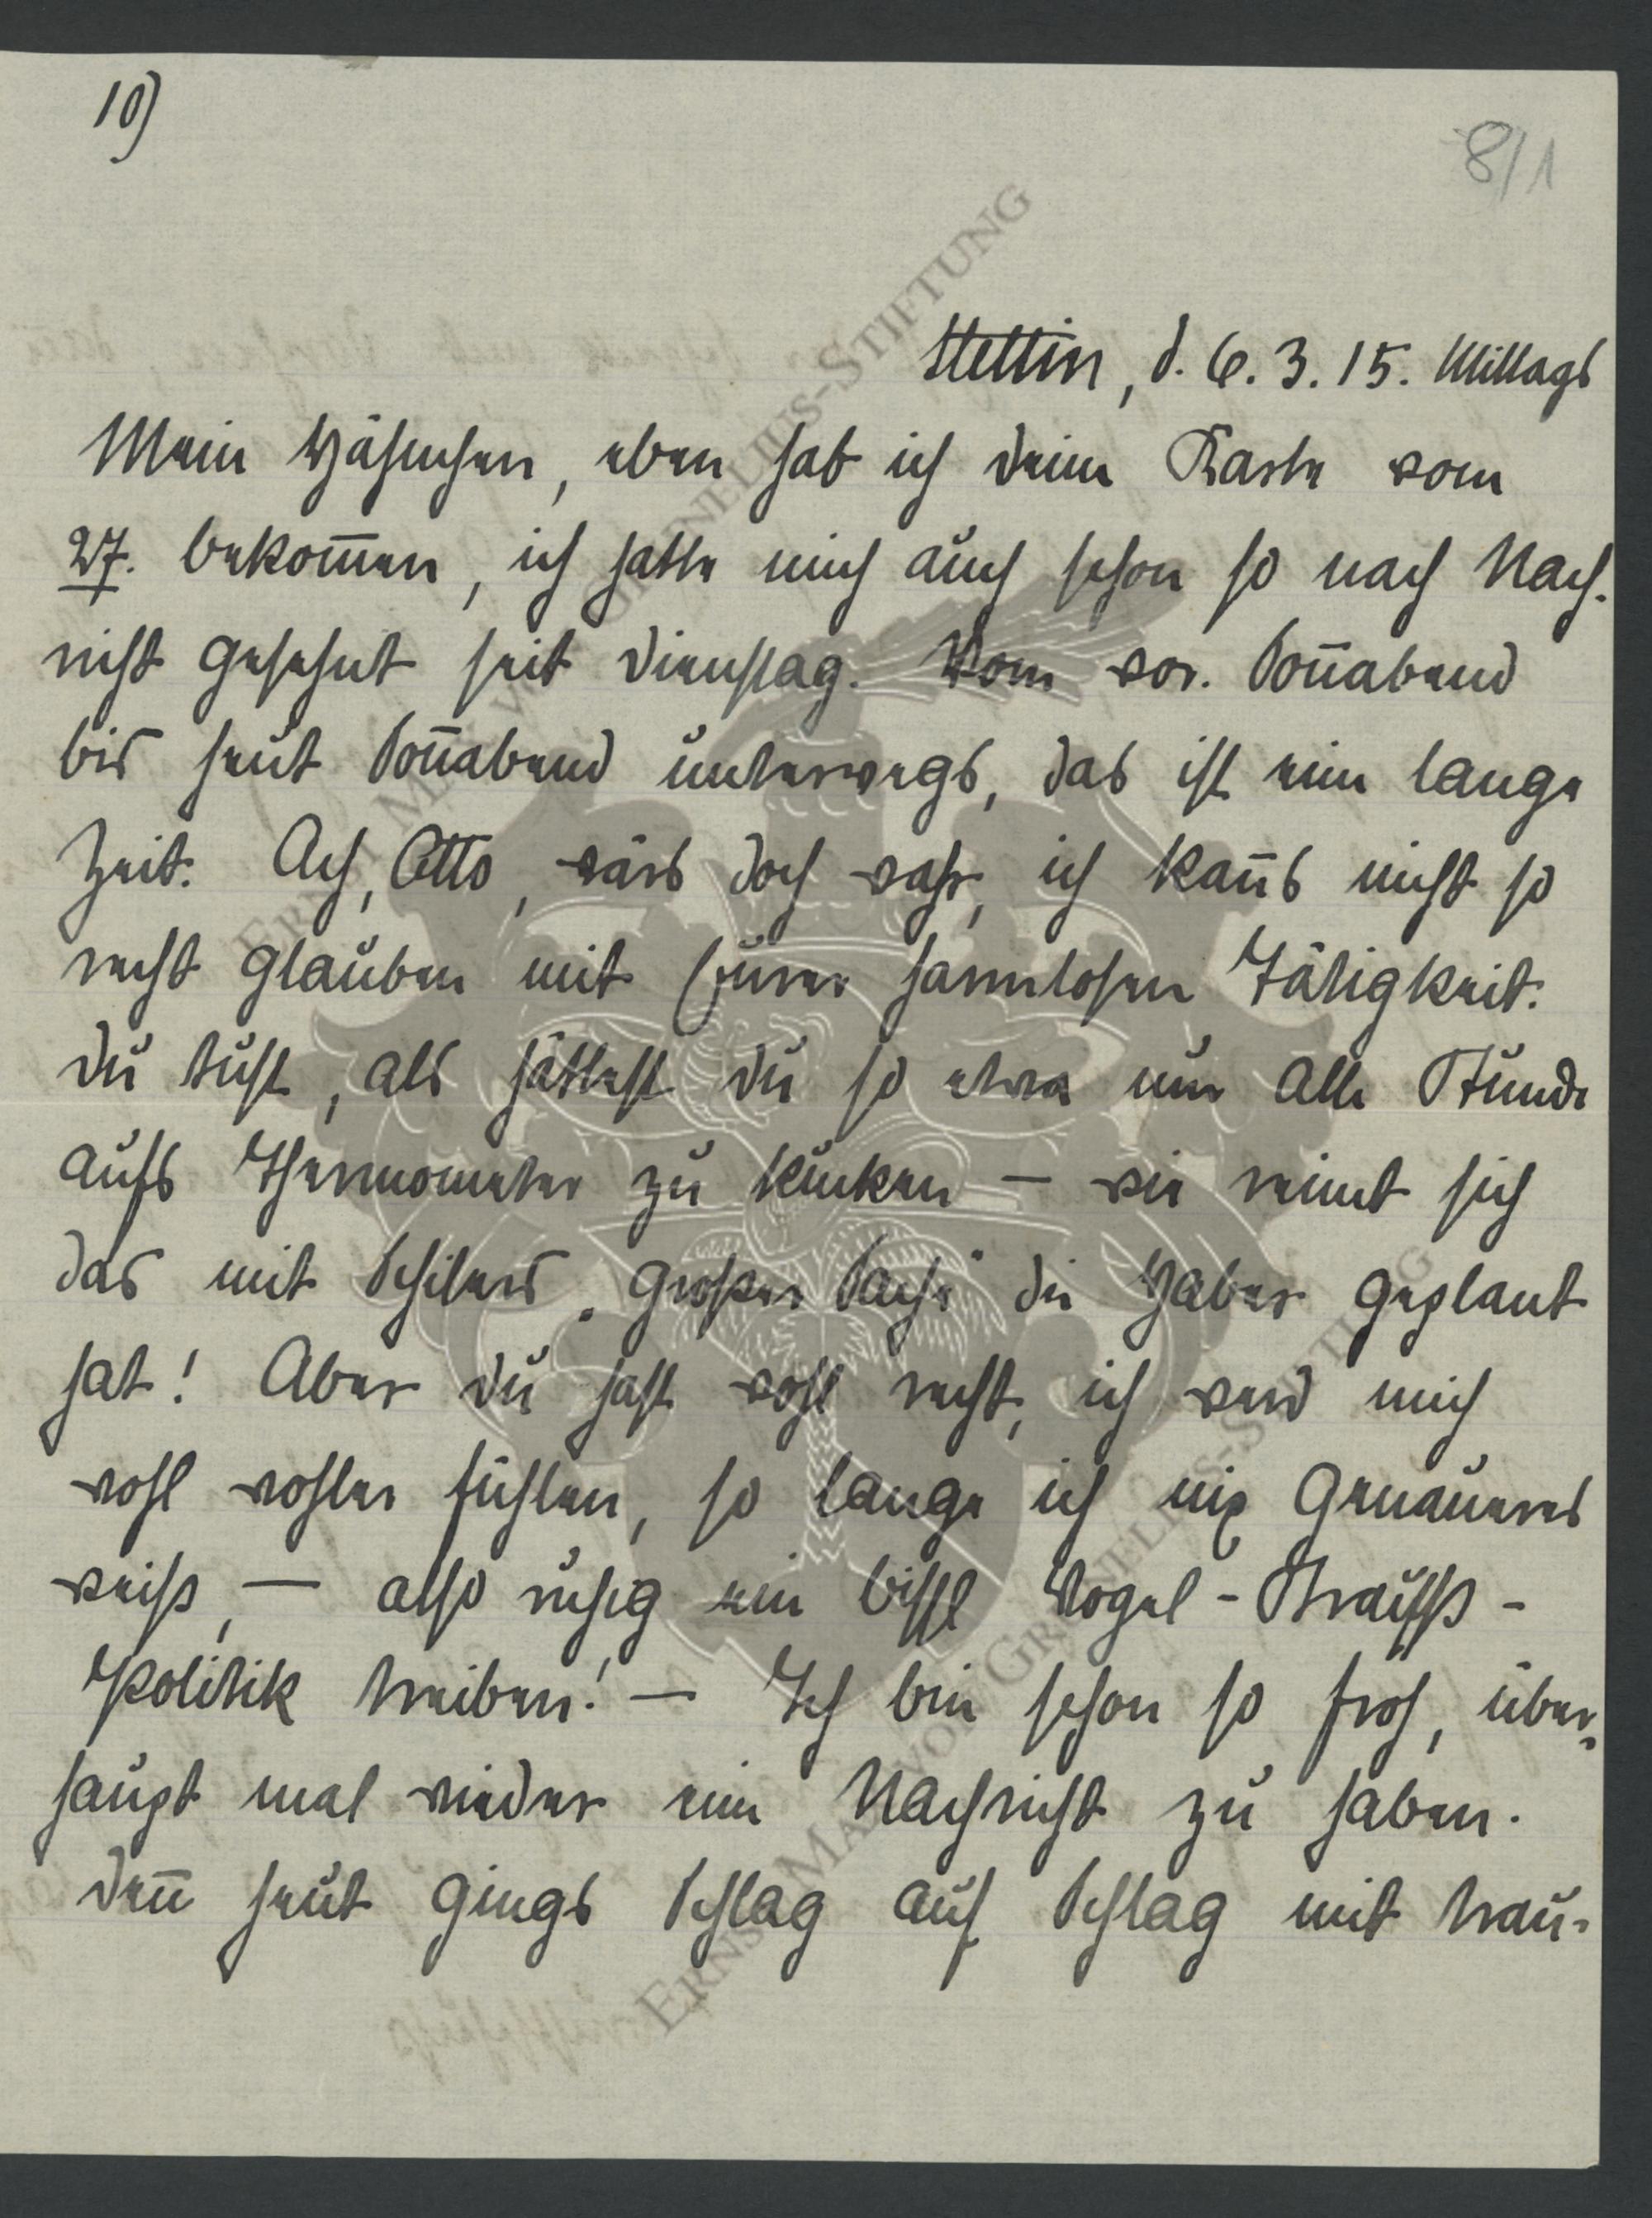 10)
8/1
Stettin, d. 6. 3. 15. Mittags
Mein Hähnchen, eben hab ich deine Karte vom
27. bekom̅en, ich hatte mich auch schon so nach Nach-
richt gesehnt seit Dienstag. Vom vor. Son̅abend
bis heut Son̅abend unterwegs, das ist eine lange
Zeit. Ach, Otto, wärs doch wahr, ich kan̅s nicht so
recht glauben mit Eurer harmlosen Tätigkeit.
Du tust, als hättest du so etwa nur alle Stunde
aufs Thermometer zu kucken – wie reimt sich
das mit Schilers „Großer Sache" die Haber geplant
hat! Aber du hast wohl recht, ich werd mich
wohl wohler fühlen, so lange ich nix Genaueres
weiß, – also ruhig ein bissl Vogel-Strauß-
Politik treiben! – Ich bin schon so froh, über-
haupt mal wieder eine Nachricht zu haben.
Den̅ heut gings Schlag auf Schlag mit trau-
ERNST MAX VON GRUNELIUS-STIFTUNG
ERNST MAX VON GRUNELIUS-STIFTUNG